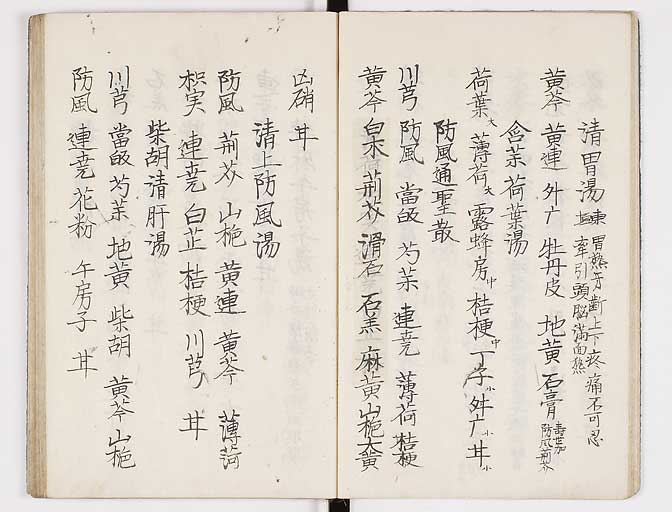 清胃湯 東垣 胃熱牙齗上下疼痛不可忍
牽引頭脳満面熱
黄芩 黄連 升广 牡丹皮 地黄 石膏 寿世加
防風荊芥
含荼荷葉湯
荷葉大 薄荷大 露蜂房中 桔梗中 丁字小 升广小 甘小
防風通聖散
川芎 防風 當皈 芍薬 連堯 薄荷 桔梗
黄芩 白朮 荊芥 滑石 石羔 麻黄 山梔 大黄
凶硝 甘
清上防風湯
防風 荊芥 山梔 黄連 黄芩 薄荷
枳実 連堯 白芷 桔梗 川芎 甘
柴胡清肝湯
川芎 當皈 芍薬 地黄 柴胡 黄芩 山梔
防風 連堯 花粉 午房子 甘